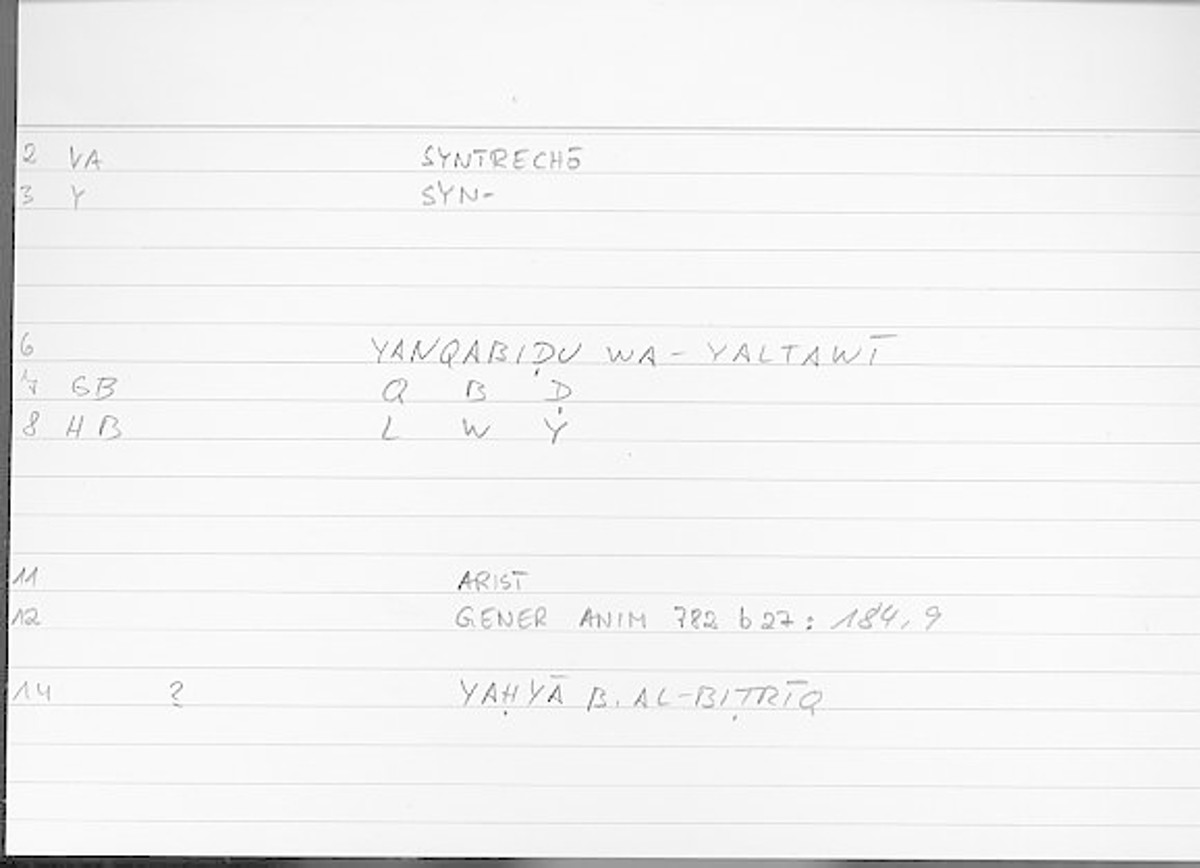 2 VA SYNTRECHŌ
3 Y SYN-
6 YANQABIḌU WA- YALTAWĪ
7 GB Q B Ḍ
8 HB L W Y
11 ARIST
12 GENER ANIM 782 b 27 : 184,9
14 ? YAḤYĀ B. AL-BIṬRĪQ